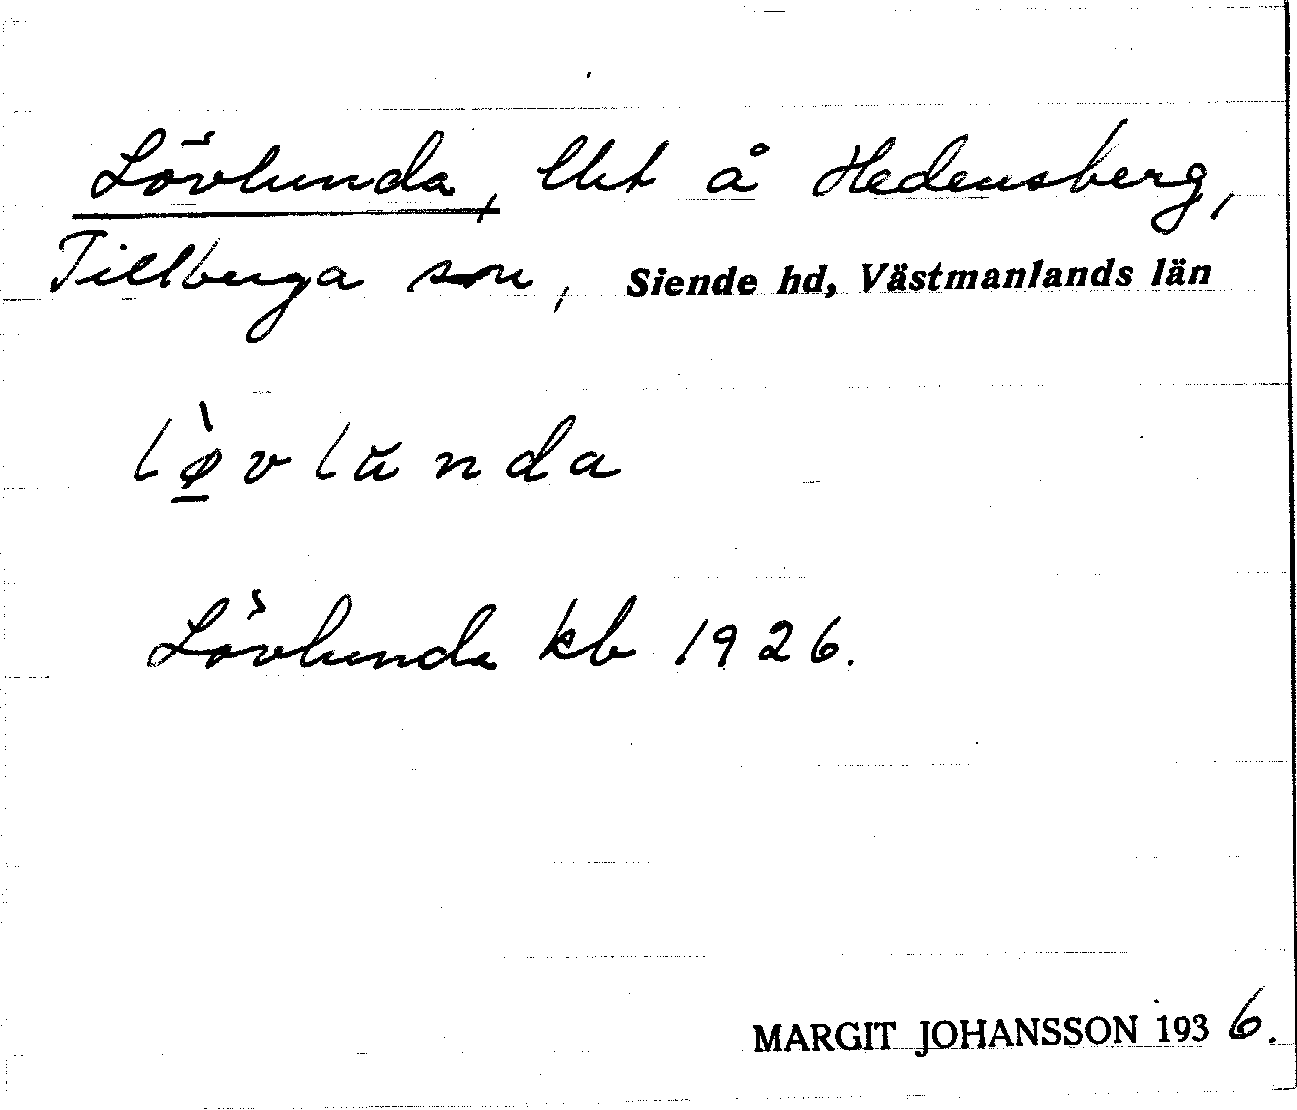 Lövlunda, lht å Hedensberg,
Tillberga sn, Siende hd, Västmanlands län
lø̀vlunda
Lövlunda kb 1926.
MARGIT JOHANSSON 1936.